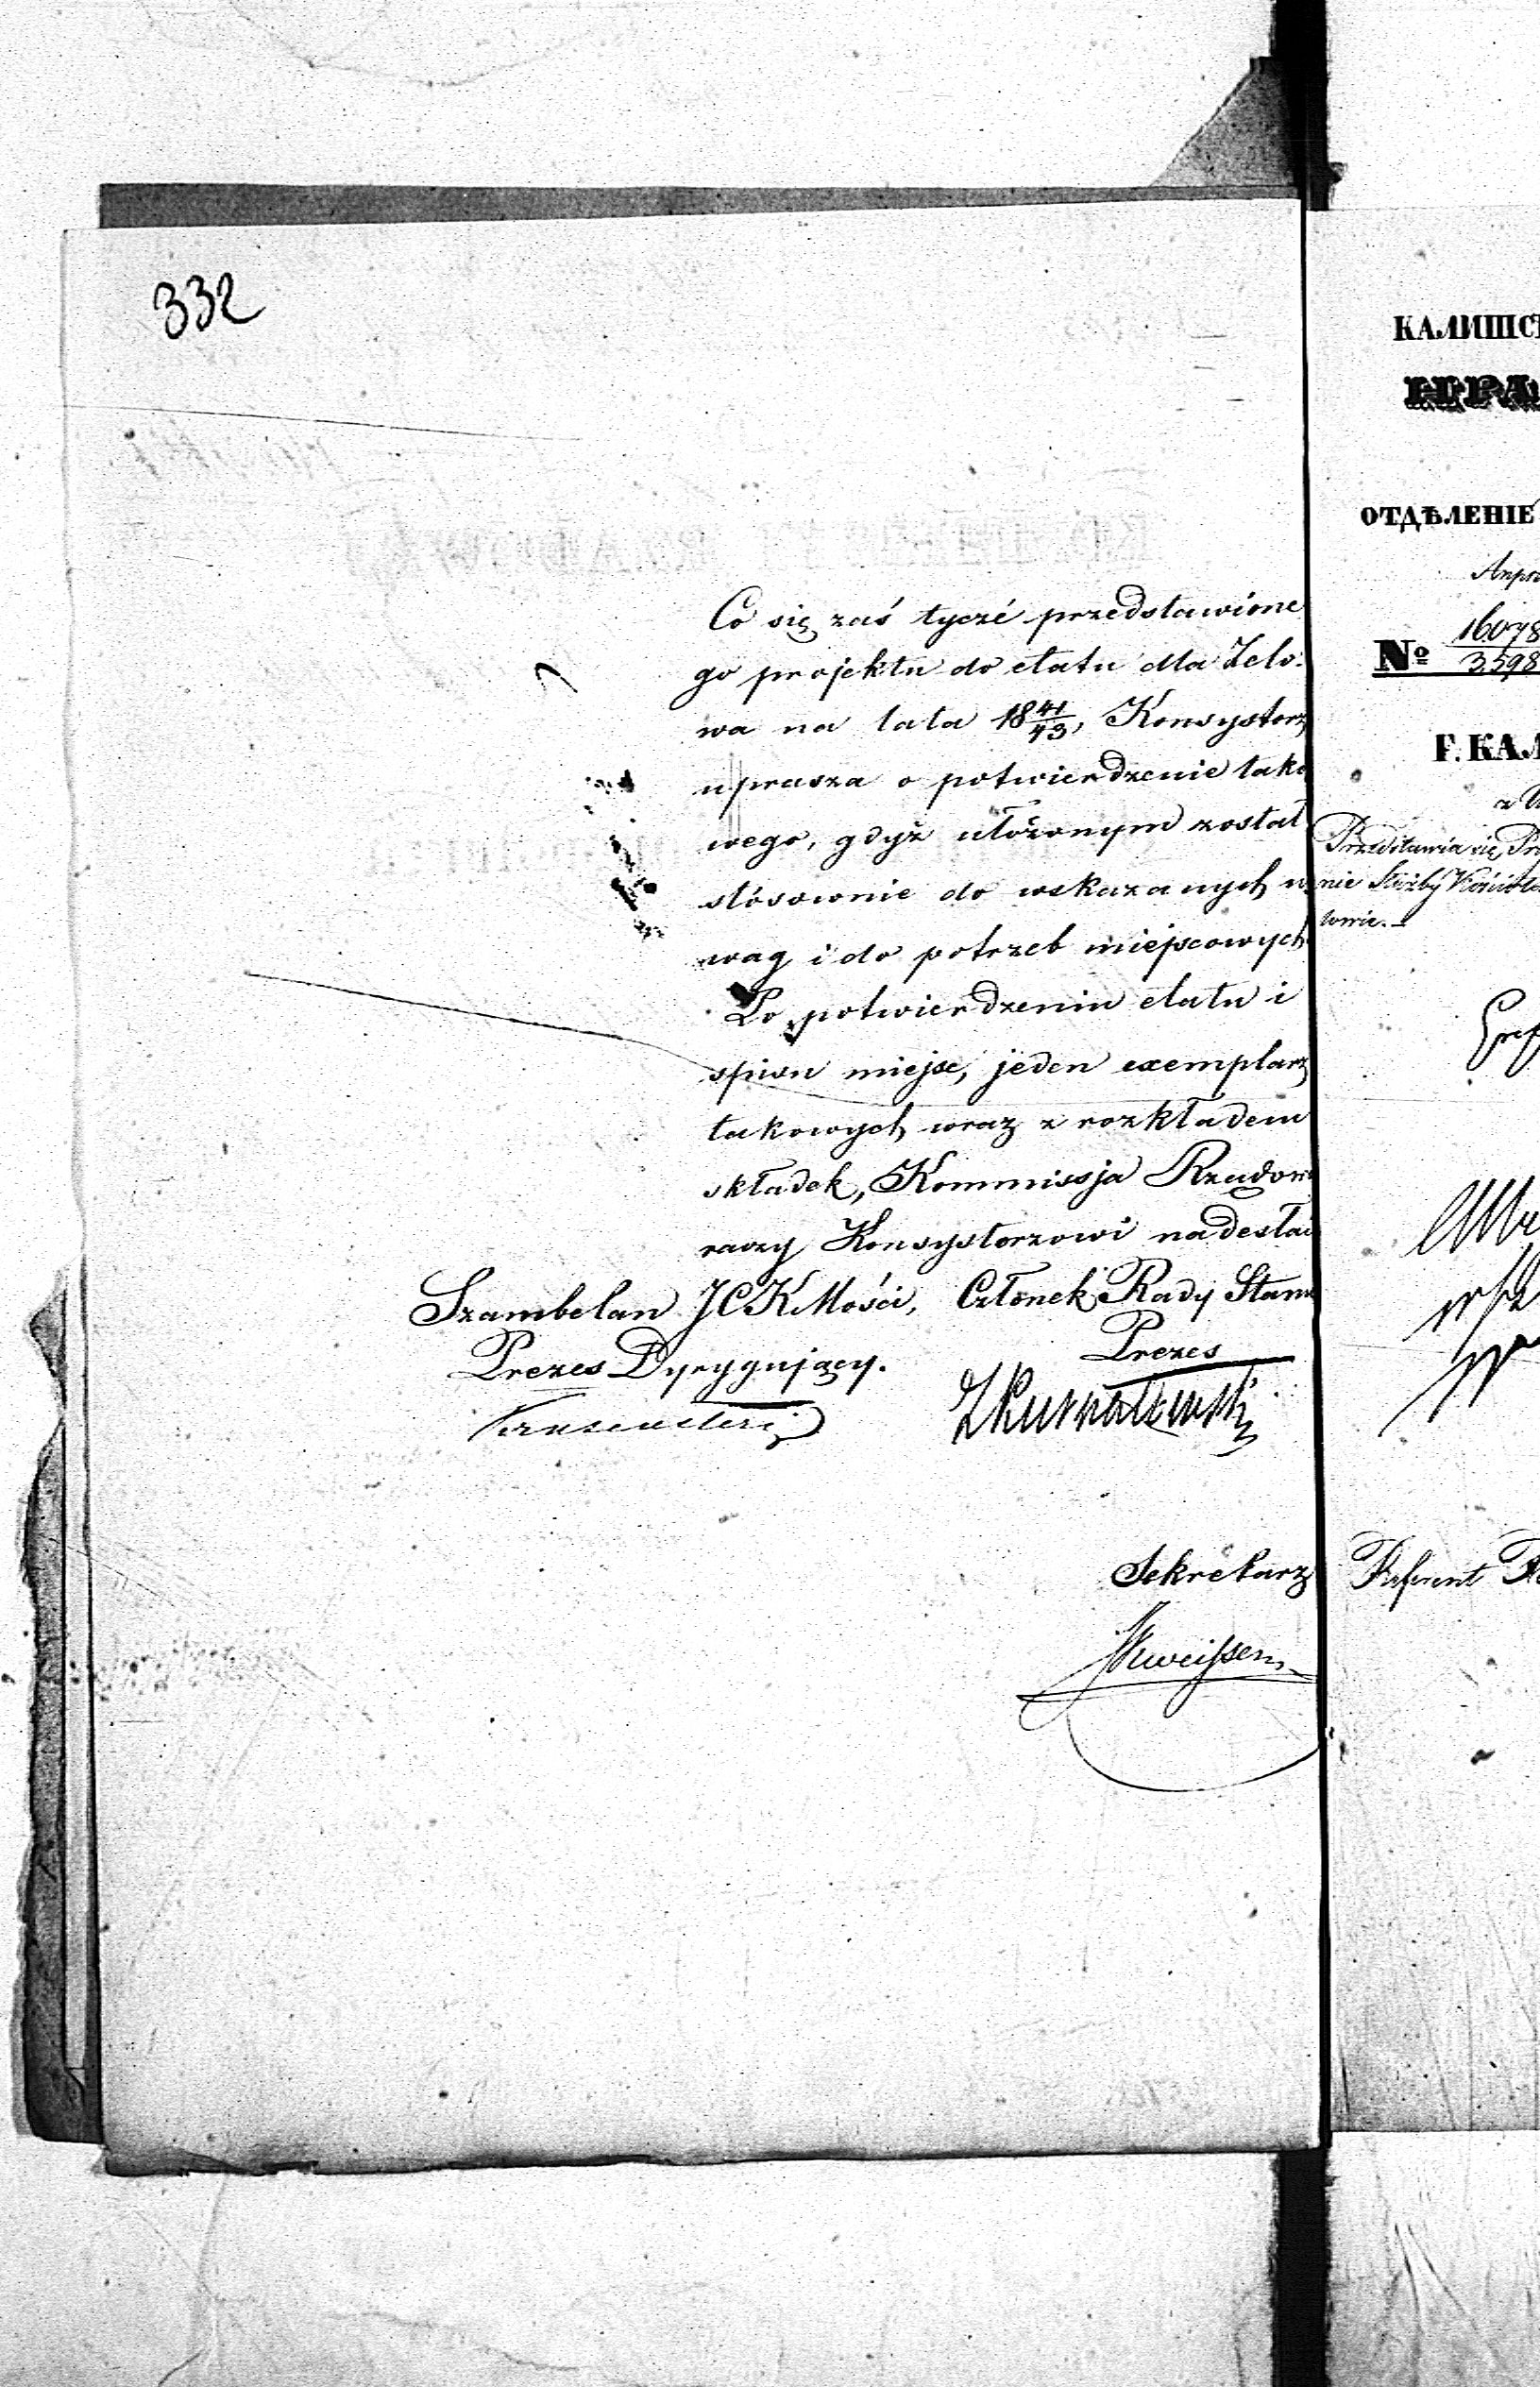 332
Co się zaś tycze przedstawione
go projektu do etatu dla Zelo-
wa na lata 18 41/43, Konsystorz
uprasza o potwierdzenie tako
wego, gdyż ułożonym został
stósownie do wskazanych u
wag i do potrzeb miejscowych
Po potwierdzeniu etatu i
spisu miejsc, jeden exemplarz
takowych wraz z rozkładem
składek, Kommissja Rządow
raczy Konsystorzowi nadesłać
Szambelan JCKMości, Członek Rady Stanu
Prezes Dyrygujący. Prezes
Sekretarz
КАЛИШС
ОТДѢЛЕНІЕ
№ 16078
3598
Г. КАЛ
Przedstawia się
nie Służby
Referent